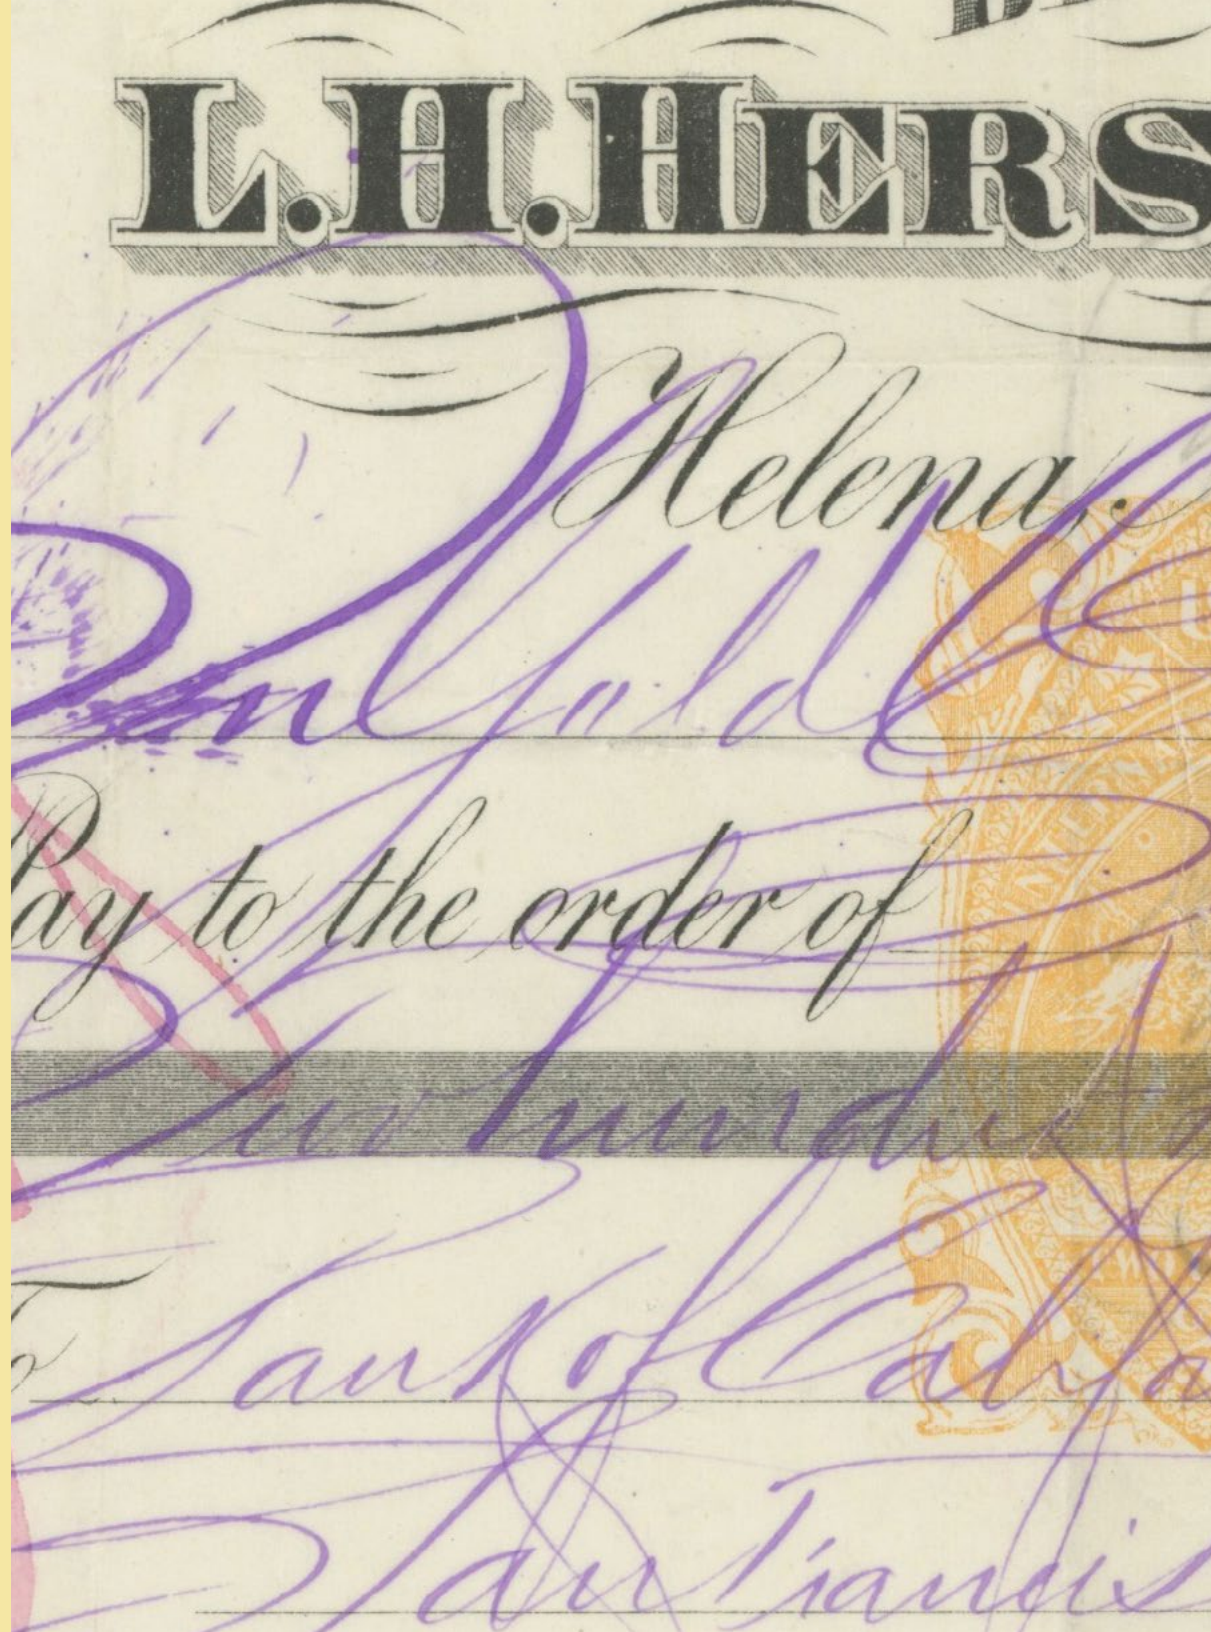 L. H. HERS
Helena,
Gold
Pay to the order of
Two hundred
To Bank of Califor
San Francis